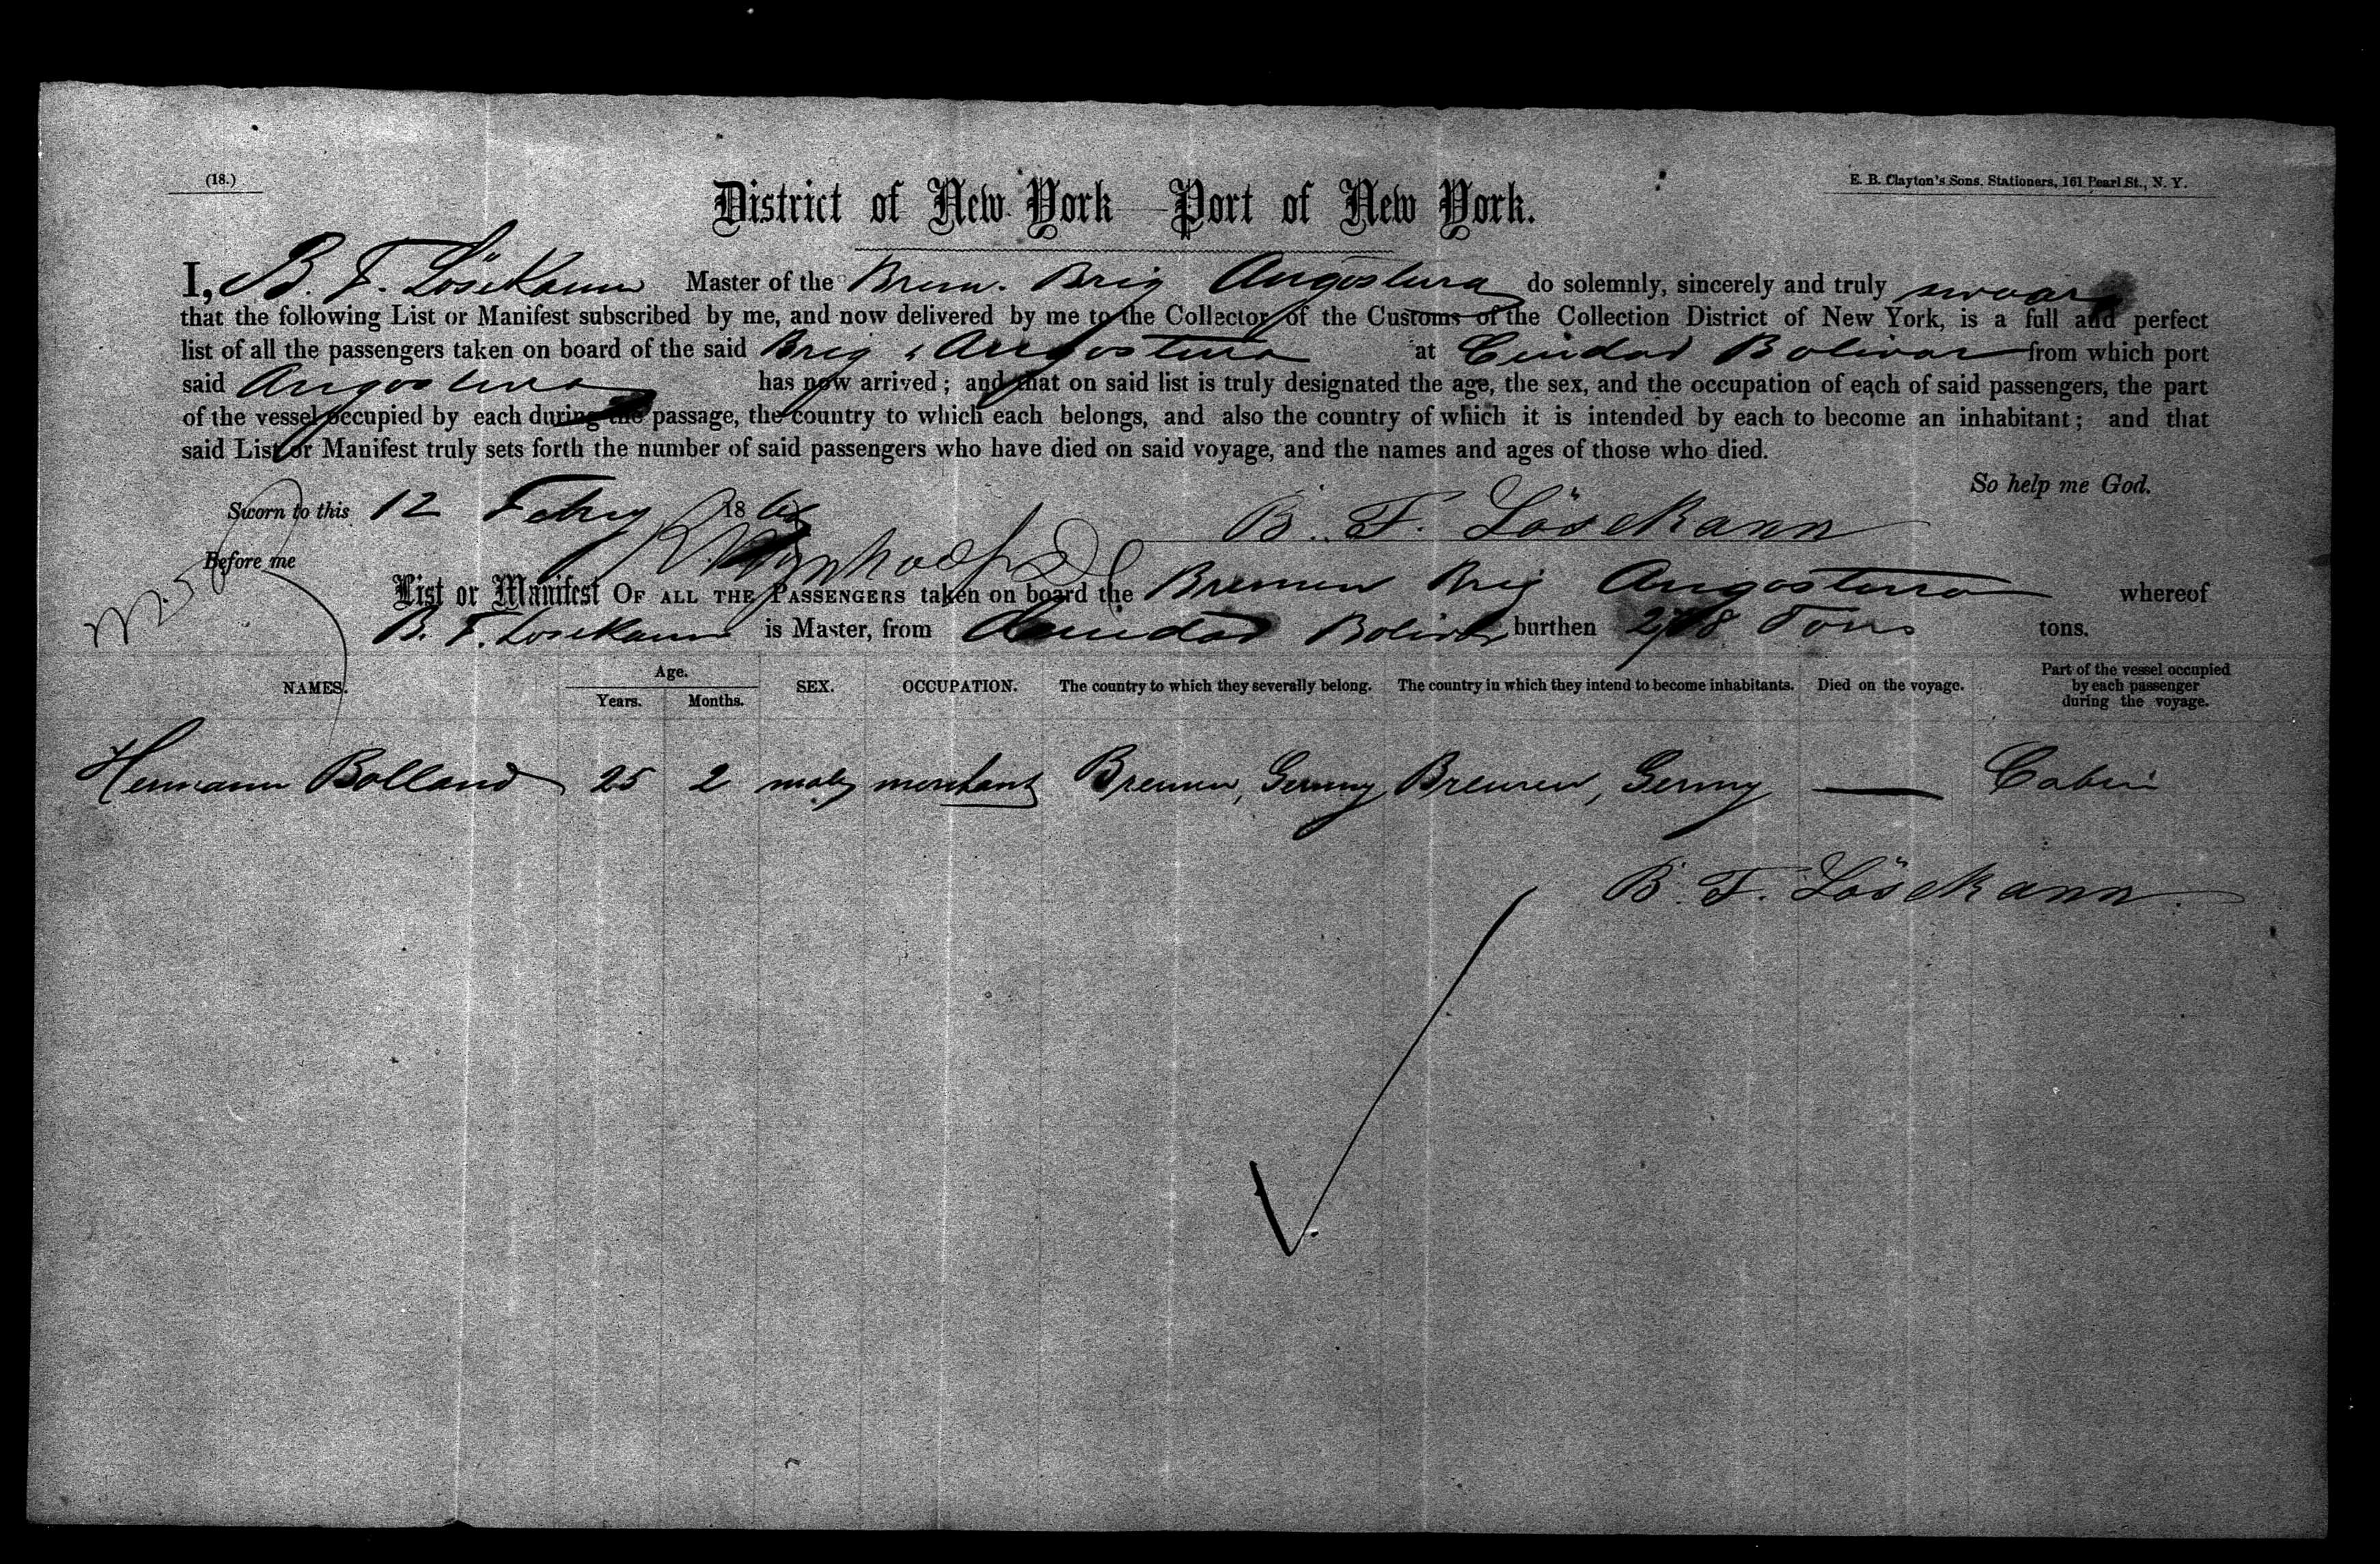 (18.)
E. B. Clayton's Sons. Stationers, 161 Pearl St., N. Y.
District of New York—Port of New York.
I, B. F. Lösekann Master of the Brem. Brig Angostura do solemnly, sincerely and truly swear
that the following List or Manifest subscribed by me, and now delivered by me to the Collector of the Customs of the Collection District of New York, is a full and perfect
list of all the passengers taken on board of the said Brig Angostura at Ciudad Bolivar from which port
said Angostura has now arrived; and that on said list is truly designated the age, the sex, and the occupation of each of said passengers, the part
of the vessel occupied by each during the passage, the country to which each belongs, and also the country of which it is intended by each to become an inhabitant; and that
said List or Manifest truly sets forth the number of said passengers who have died on said voyage, and the names and ages of those who died.
So help me God.
Sworn to this 12 Febry 18
B. F. Lösekann
Before me
List or Manifest OF ALL THE PASSENGERS taken on board the Bremen Brig Angostura whereof
B. F. Losekann is Master, from Ciudad Bolivar burthen Tons tons.
NAMES. Age. Years. Months. SEX. OCCUPATION. The country to which they severally belong. The country in which they intend to become inhabitants. Died on the voyage. Part of the vessel occupied by each passenger during the voyage.
Hermann Bolland 25 2 male merchant Bremen, Germy Bremen, Germy — Cabin
B. F. Lösekann